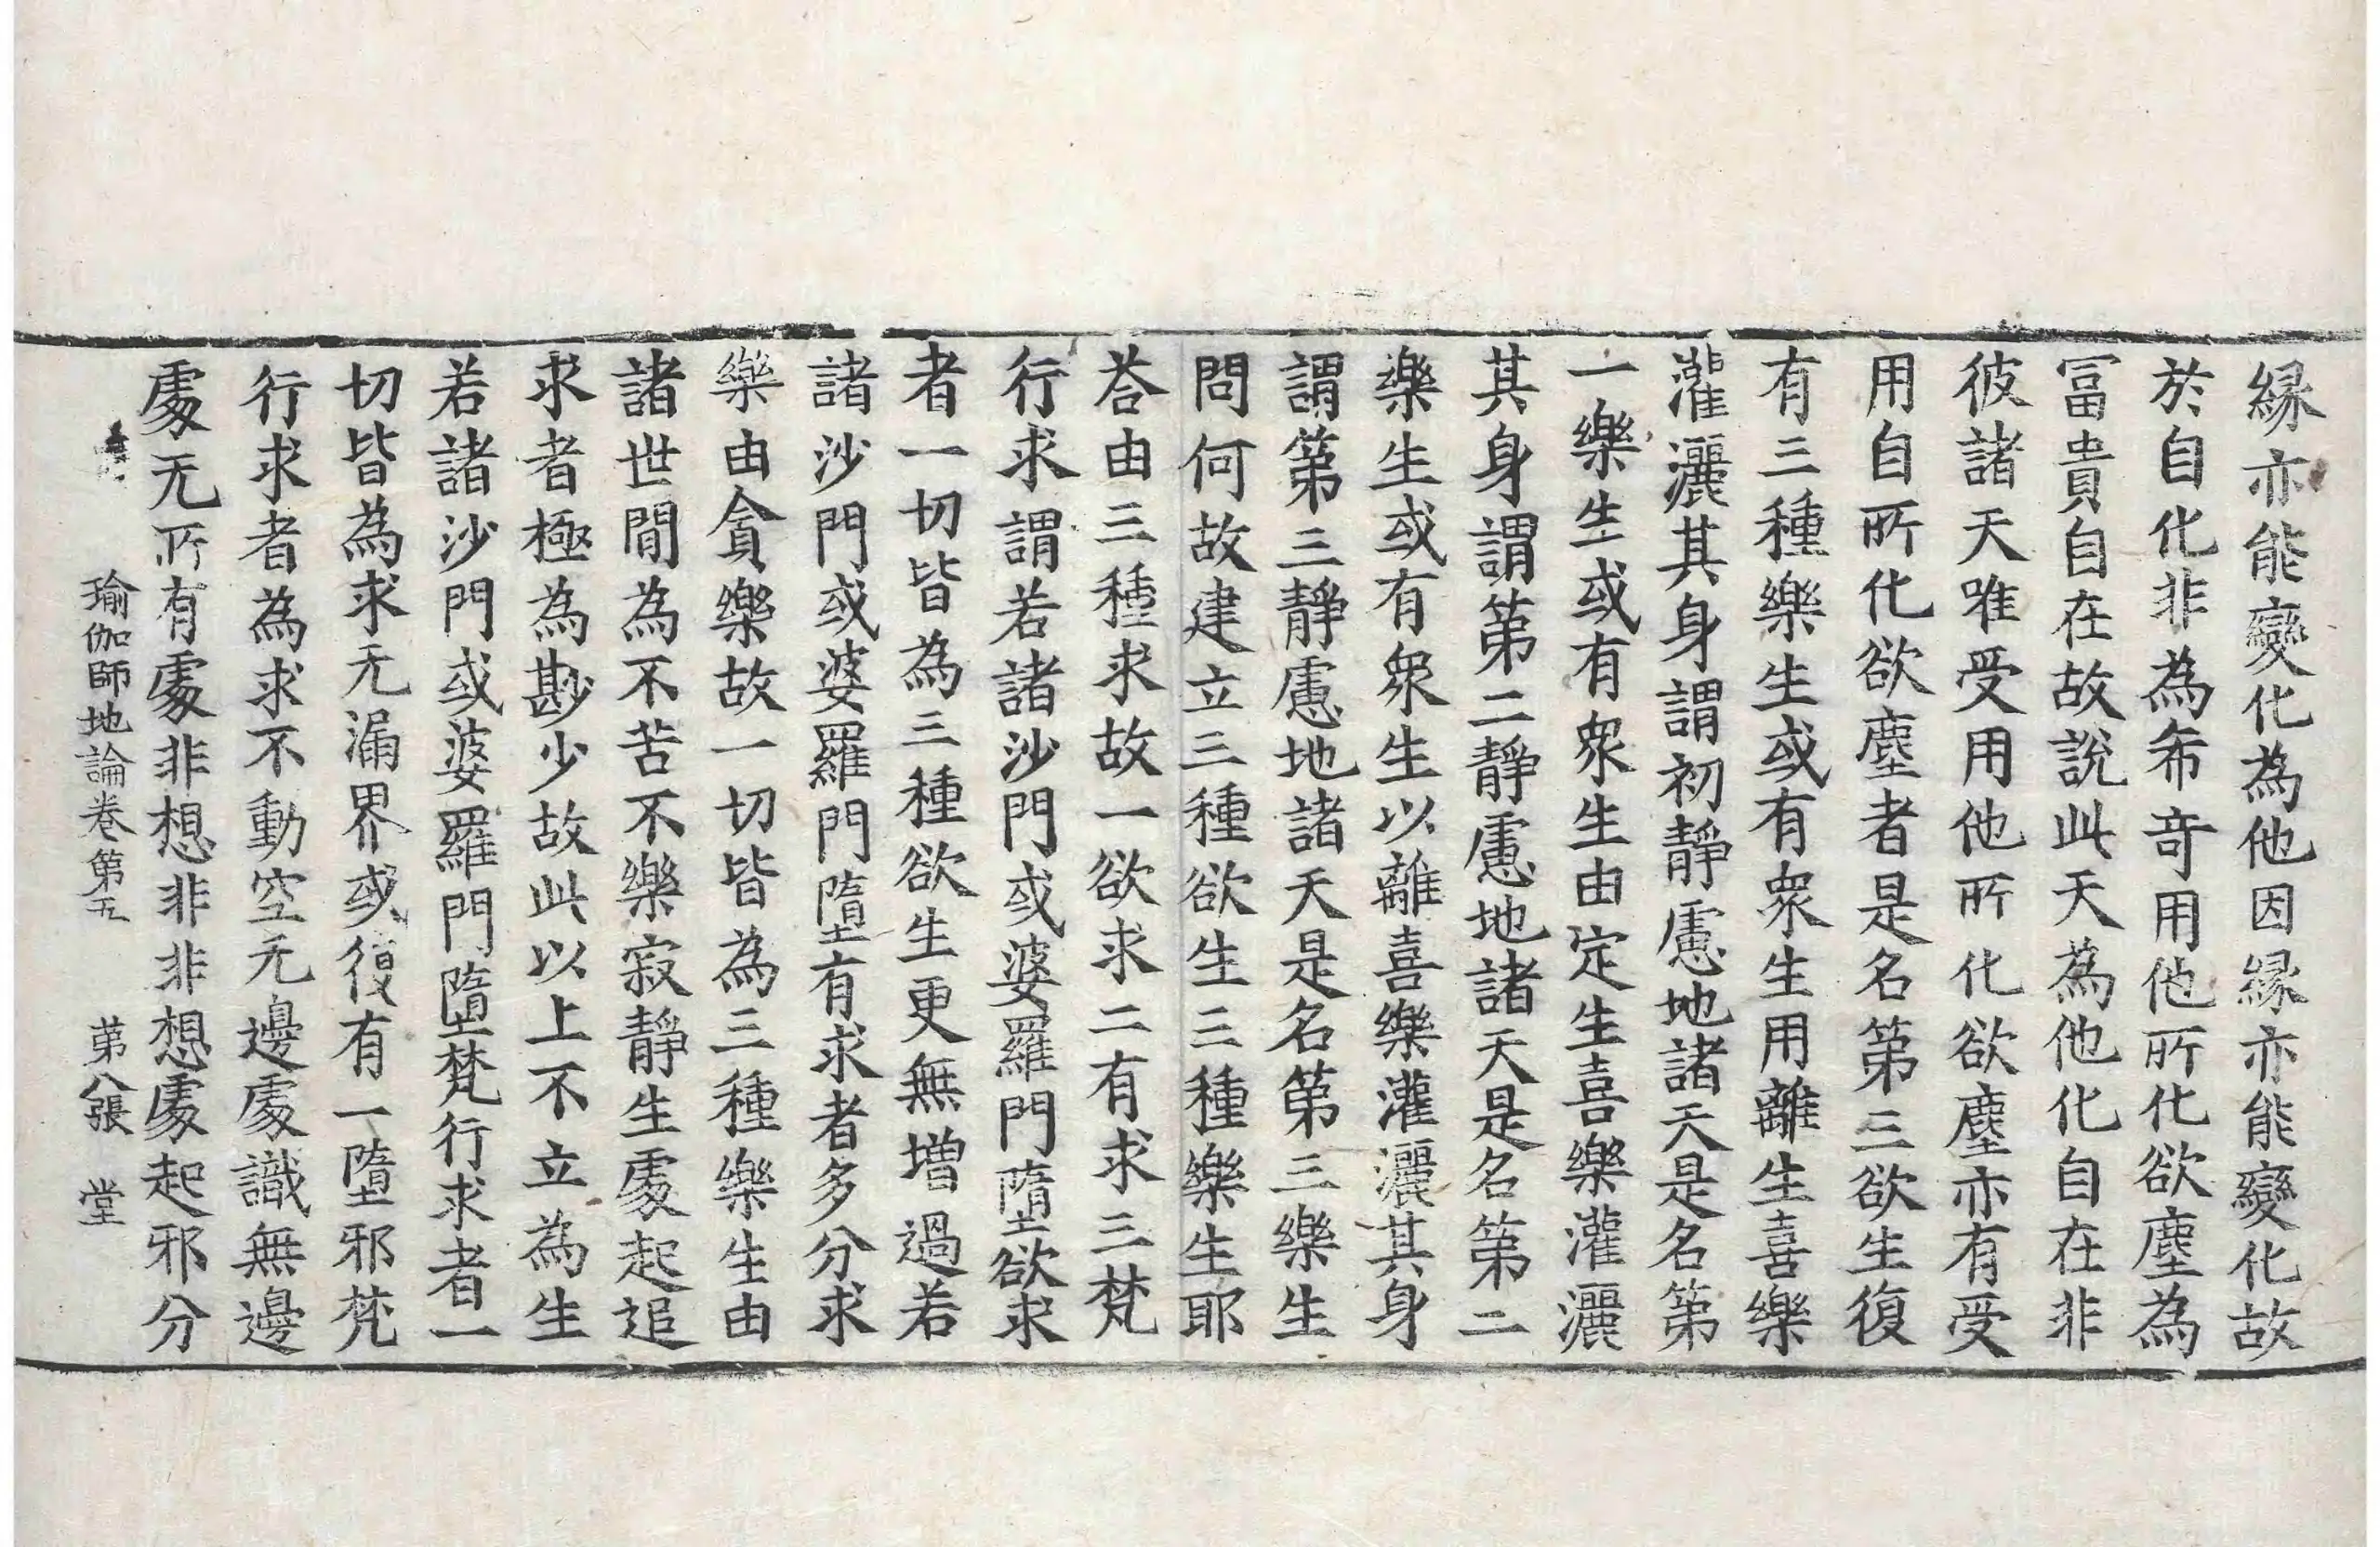 緣亦能變化為他因緣亦能變化故
於自化非為希奇用他所化欲塵為
冨貴自在故說此天為他化自在非
彼諸天唯受用他所化欲塵亦有受
用自所化欲塵者是名第三欲生復
有三種樂生或有衆生用離生喜樂
灌灑其身謂初靜慮地諸天是名第
一樂生或有衆生由定生喜樂灌灑
其身謂第二靜慮地諸天是名第二
樂生或有衆生以離喜樂灌灑其身
謂第三靜慮地諸天是名第三樂生
問何故建立三種欲生三種樂生耶
荅由三種求故一欲求二有求三梵
行求謂若諸沙門或婆羅門墮欲求
者一切皆為三種欲生更無增過若
諸沙門或婆羅門墮有求者多分求
樂由貪樂故一切皆為三種樂生由
諸世間為不苦不樂寂靜生處起追
求者極為尠少故此以上不立為生
若諸沙門或婆羅門墮梵行求者一
切皆為求无漏界或復有一墮邪梵
行求者為求不動空无邊處識無邊
處无所有處非想非非想處起邪分
瑜伽師地論卷第五 第八張 堂